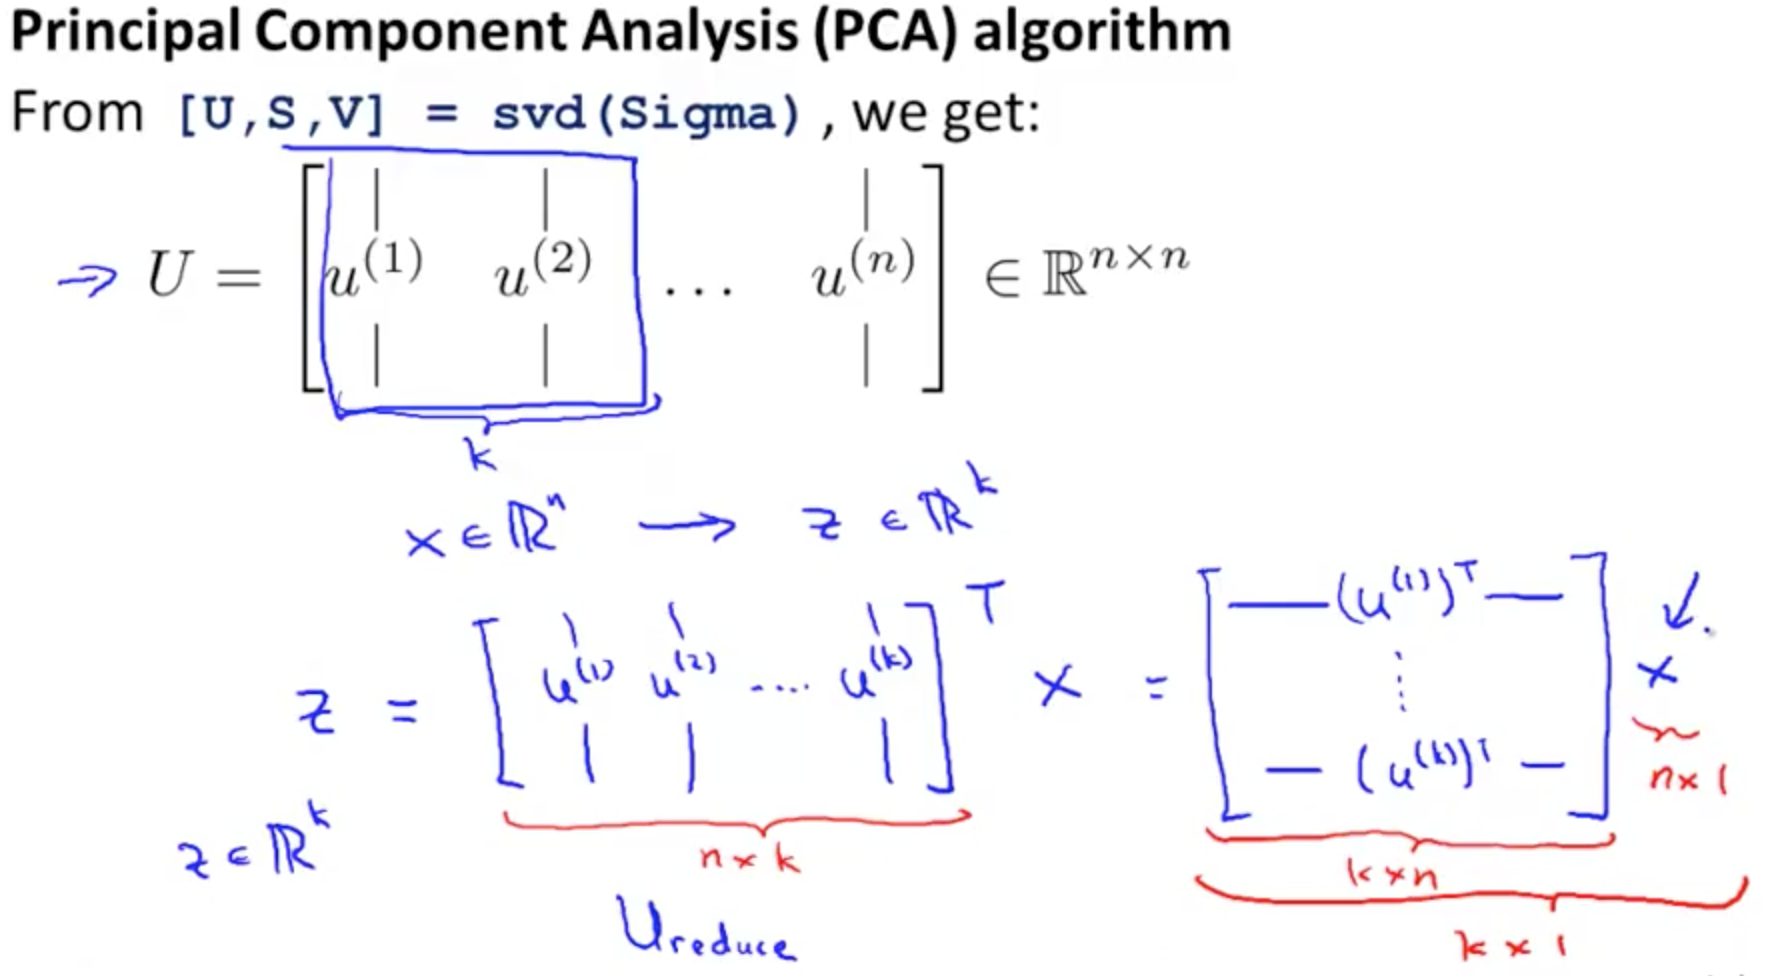 Principal Component Analysis (PCA) algorithm
From [U,S,V] = svd(Sigma) , we get:
⇒ U = [ u^(1) u^(2) ... u^(n) ] ∈ ℝ^{n×n}
k
x ∈ ℝ^n → z ∈ ℝ^k
z = [ u^(1) u^(2) .... u^(k) ]^T x = [ — (u^(1))^T — ⋮ — (u^(k))^T — ] x
n×1
z ∈ ℝ^k
n×k
k×n
Ureduce
k×1